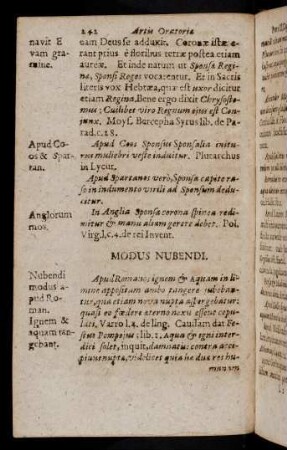 242 Artis Oratoriæ
navit E
vam gra-
eam Deus se adduxit. Coronæ istæ e-
rant prius è floribus tetræ postea etiam
aureæ. Et inde natum ut Sponsa Regi-
næ, Sponsi Reges vocarentur. Et in Sacris
literis vox Hebræa, quæ est uxor dicitur
etiam Regina, Bene ergo dixit Chrysosto-
mus: Cuilibet viro Regnum ejus est Con-
junx. Moys. Barcepha Syrus lib. de Pa-
rad. c. 28.
Apud Co-
os & Spar-
tan.
Apud Coos Sponsus Sponsalia initu-
rus muliebri veste induitur. Plutarchus
in Lycur.
Apud Spartanos verò, Sponsa capite ra-
so in indumento virili ad Sponsum dedu-
citur.
Anglorum
mos.
In Anglia Sponsa corona spicea redi-
mitur & manu aliam gerere debet. Pol.
Virg. l. c. 4. de rei Invent.
MODUS NUBENDI.
Nubendi
modus a-
pud Ro-
man.
Ignem &
aquam tan-
gebant.
Apud Romanos ignem & aquam in li-
mine appositam ambo tangere jubeban-
tur, qua etiam nova nupta aspergebatur:
quasi eo fœdere æterno nexu essent copu-
lati, Varro l. 4. de ling. Causam dat Fe-
stus Pompejus: lib. 1. Aqua & igni inter-
dici solet, inquit, damnatis: contra acci-
piunt nuptæ, videlicet quia hæ duæ res hu-
manam